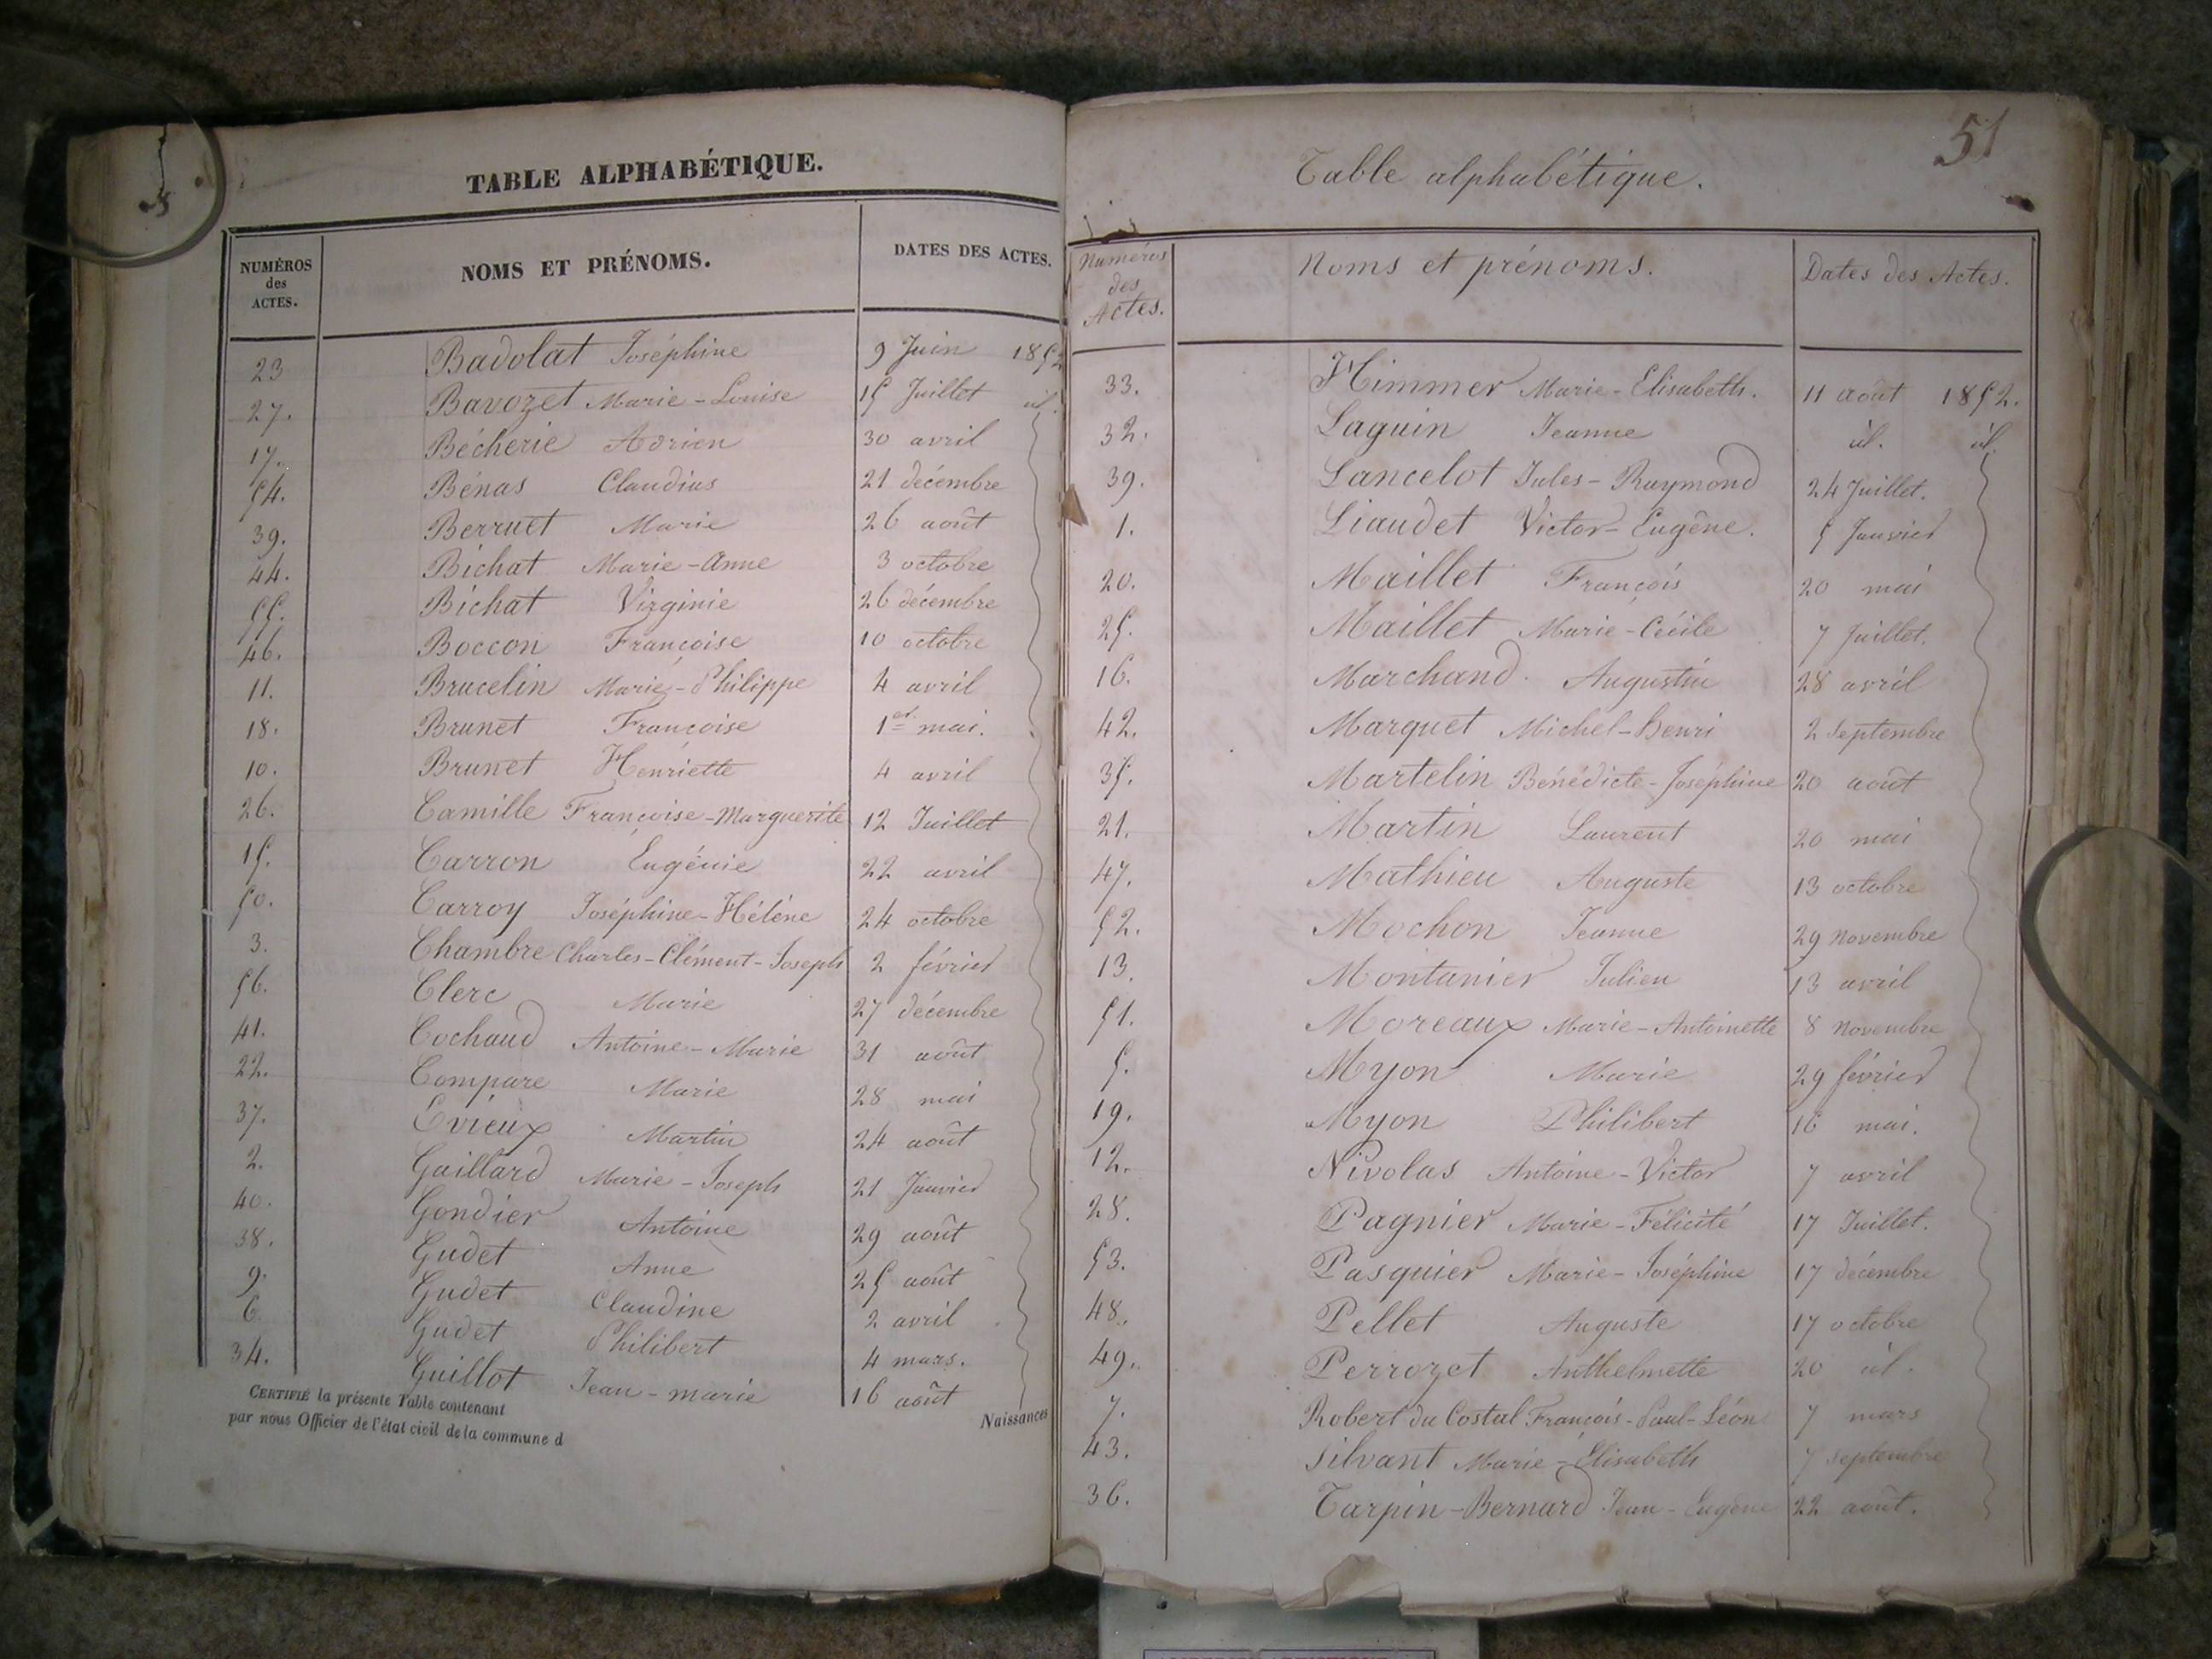 TABLE ALPHABÉTIQUE.
NUMÉROS des ACTES. NOMS ET PRÉNOMS. DATES DES ACTES.
23 Badolat Joséphine 9 Juin 1852
27. Bavozet Marie-Louise 15 Juillet id.
17. Bécherie Adrien 30 avril
54. Bénas Claudius 21 décembre
39. Berruet Marie 26 août
44. Bichat Marie-Anne 3 octobre
55. Bichat Virginie 26 décembre
46. Boccon Françoise 10 octobre
11. Brucelin Marie-Philippe 4 avril
18. Brunet Françoise 1er mai.
10. Brunet Henriette 4 avril
26. Camille Françoise-Marguerite 12 Juillet
15. Carron Eugénie 22 avril
50. Carroy Joséphine-Hélène 24 octobre
3. Chambre Charles-Clément-Joseph 2 février
56. Clerc Marie 27 décembre
41. Cochaud Antoine-Marie 31 août
22. Compare Marie 28 mai
37. Evieux Martin 24 août
2. Gaillard Marie-Joseph 21 Janvier
40. Gondier Antoine 29 août
38. Gudet Anne 25 août
9. Gudet Claudine 2 avril
6. Gudet Philibert 4 mars.
34. Guillot Jean-marie 16 août
CERTIFIÉ la présente Table contenant Naissances
par nous Officier de l'état civil de la commune d
51
Table alphabétique.
Numéros des Actes. Noms et prénoms. Dates des Actes.
33. Himmer Marie-Elisabeth. 11 août 1852.
32. Laguin Jeanne id. id.
39. Lancelot Jules-Raymond 24 Juillet.
1. Liaudet Victor-Eugène. 5 Janvier
20. Maillet François 20 mai
25. Maillet Marie-Cécile 7 Juillet.
16. Marchand. Augustin 28 avril
42. Marquet Michel-henri 2 Septembre
35. Martelin Bénédicte-Joséphine 20 août
21. Martin Laurent 20 mai
47. Mathieu Auguste 13 octobre
52. Mochon Jeanne 29 Novembre
13. Montanier Julien 13 avril
51. Moreaux Marie-Antoinette 8 Novembre
5. Myon Marie 29 février
19. Myon Philibert 16 mai.
12. Nivolas Antoine-Victor 7 avril
28. Pagnier Marie-Félicité 17 Juillet.
53. Pasquier Marie-Joséphine 17 décembre
48. Pellet Auguste 17 octobre
49. Perrozet Anthelmette 20 id.
7. Robert du Costal François-Paul-Léon 7 mars
43. Silvant Marie-Elisabeth 7 septembre
36. Tarpin-Bernard Jean-Eugène 22 août.